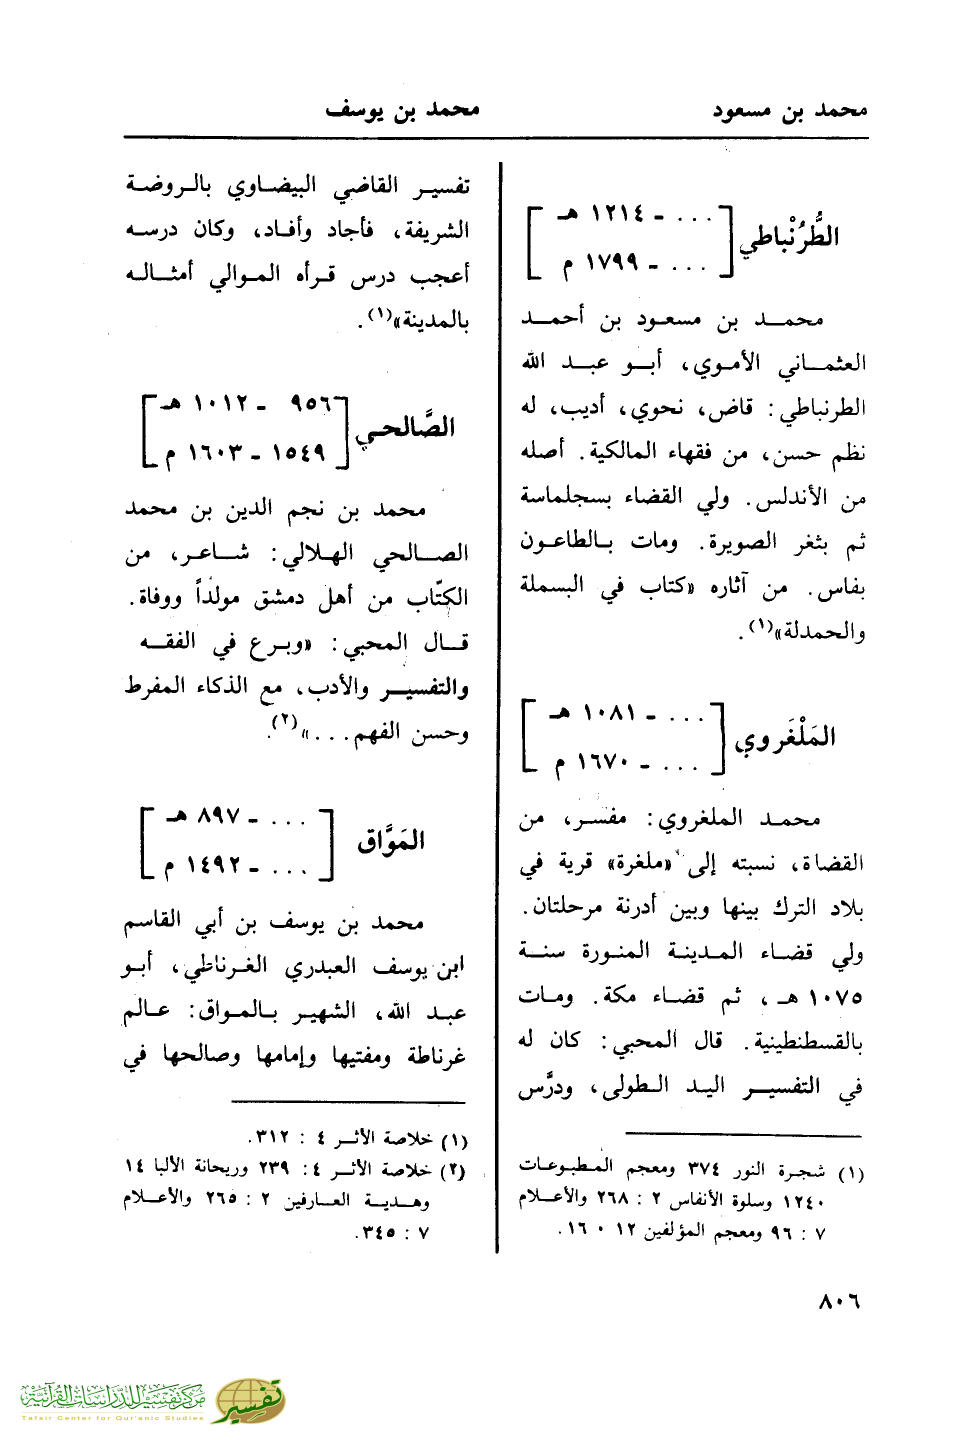 محمد بن مسعود
محمد بن يوسف
الطُّرُنْباطي
... ـ ١٢١٤ هـ
... ـ ١٧٩٩ م
محمـد بن مسعود بن أحمـد
العثمـاني الأمـوي، أبـو عبـد الله
الطرنباطي: قاض، نحوي، أديب، له
نظم حسن، من فقهاء المالكية. أصله
من الأندلس. ولي القضاء بسجلماسة
ثم بثغر الصويرة. ومات بـالطاعـون
بفاس. من آثاره «كتاب في البسملة
والحمدلة»(١).
المَلْغَروي
... ـ ١٠٨١ هـ
... ـ ١٦٧٠ م
محمـد الملغروي: مفسـر، من
القضاة، نسبته إلى «ملغرة» قرية في
بلاد الترك بينها وبين أدرنة مرحلتان.
ولي قضـاء المـدينـة المنورة سنـة
١٠٧٥ هـ، ثم قضـاء مكة. ومـات
بالقسطنطينية. قال المحبي: كان له
في التفسيـر اليـد الـطولى، ودرَّس
(١) شجرة النور ٣٧٤ ومعجم المطبوعات
١٢٤٠ وسلوة الأنفاس ٢ : ٢٦٨ والأعـلام
٧ : ٩٦ ومعجم المؤلفين ١٢ ٠ ١٦.
تفسيـر القـاضي البيضـاوي بالـروضـة
الشريفة، فأجاد وأفـاد، وكان درسـه
أعجب درس قـرأه المـوالي أمثـالـه
بالمدينة»(١).
الصَّالحـي
٩٥٦ ـ ١٠١٢ هـ
١٥٤٩ ـ ١٦٠٣ م
محمد بن نجم الدين بن محمد
الصـالحي الهـلالي: شـاعـر، من
الكتّاب من أهل دمشق مولداً ووفاة.
قـال المحبي: «وبـرع في الفقـه
والتفسيـر والأدب، مع الذكاء المفرط
وحسن الفهم...»(٢).
المَوَّاق
... ـ ٨٩٧ هـ
... ـ ١٤٩٢ م
محمد بن يوسف بن أبي القاسم
ابن يوسف العبدري الغـرناطي، أبـو
عبـد الله، الشهيـر بـالمـواق: عـالم
غرناطة ومفتيها وإمامها وصالحها في
(١) خلاصة الأثـر ٤ : ٣١٢.
(٢) خلاصة الأثـر ٤: ٢٣٩ وريحانة الألبا ١٤
وهـديـة العـارفين ٢ : ٢٦٥ والأعـلام
٧ : ٣٤٥.
٨٠٦
مركز تفسير للدراسات القرآنية
Tafsir Center for Qur'anic Studies
تفسير